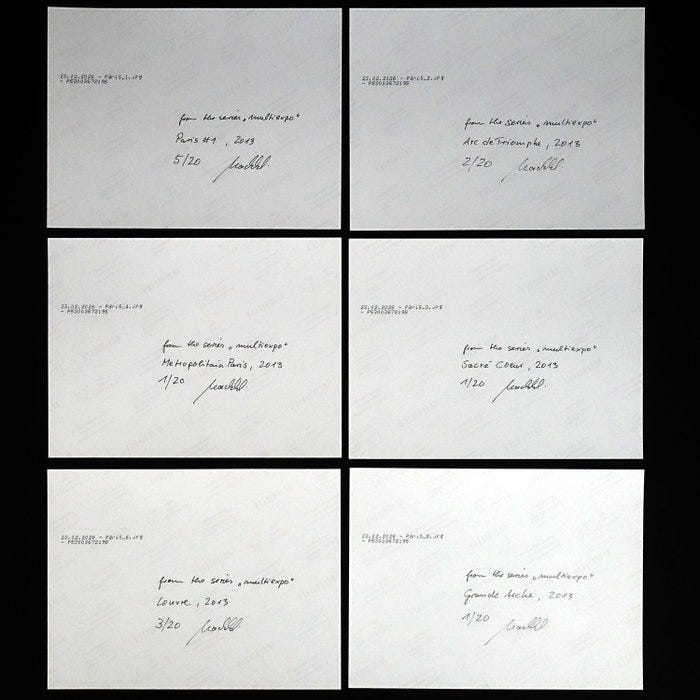 22.02.2026 - Paris_1.jpg
- P53003672195
from the series „multiexpo“
Paris #1 , 2013
5/20
22.02.2026 - Paris_2.jpg
- P53003672195
from the series „multiexpo“
Arc de Triomphe, 2013
2/20
22.02.2026 - Paris_4.jpg
- P53003672195
from the series „multiexpo“
Metropolitain Paris, 2013
1/20
22.02.2026 - Paris_3.jpg
- P53003672195
from the series „multiexpo“
Sacré Cœur, 2013
1/20
22.02.2026 - Paris_6.jpg
- P53003672195
from the series „multiexpo“
Louvre , 2013
3/20
22.02.2026 - Paris_5.jpg
- P53003672195
from the series „multiexpo“
Grande Arche, 2013
1/20